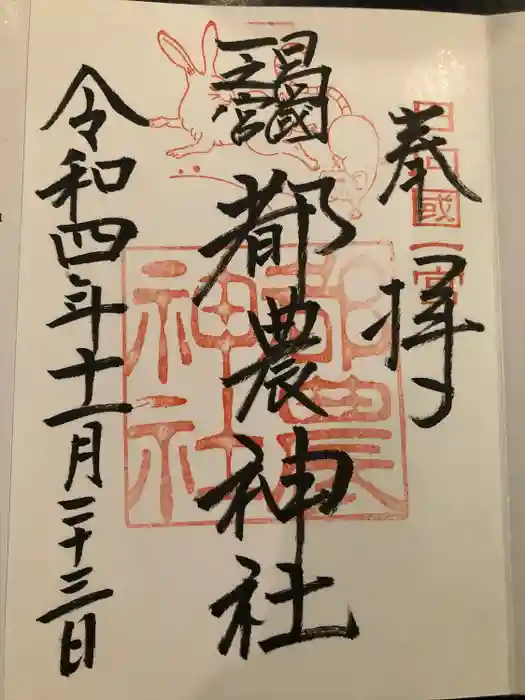 奉拝
日向國一宮
日向國一之宮
都農神社
都農神社
令和四年十一月二十三日